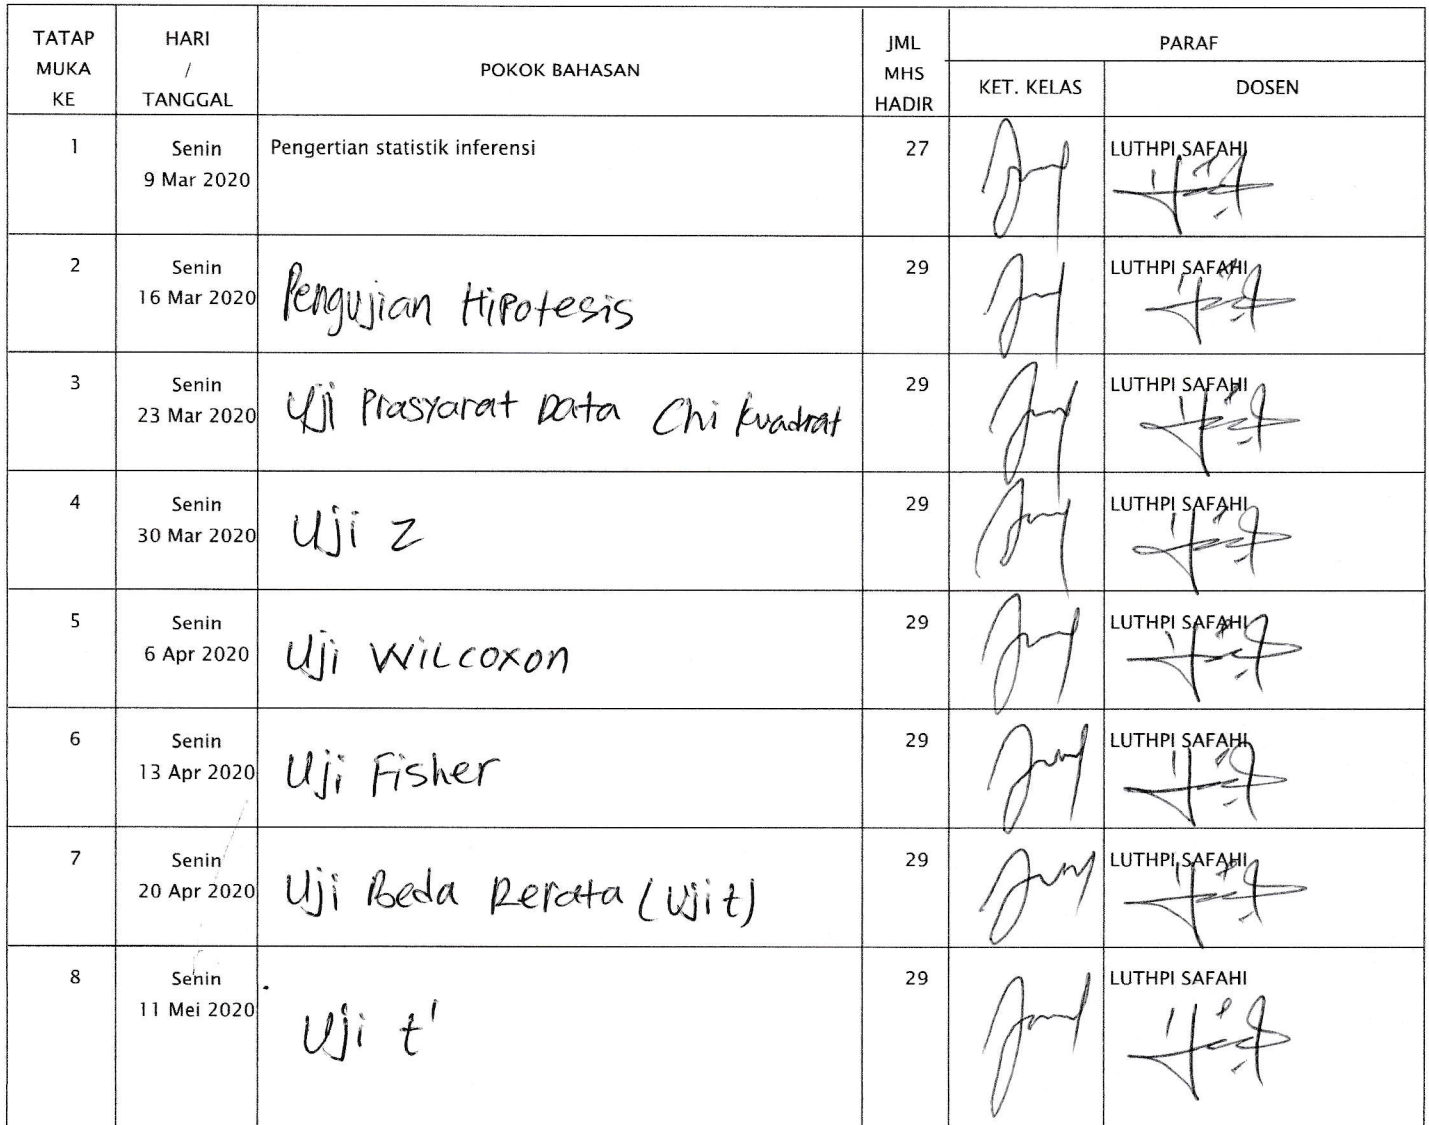 TATAP MUKA KE
HARI / TANGGAL
POKOK BAHASAN
JML MHS HADIR
PARAF
KET. KELAS
DOSEN
1
Senin
9 Mar 2020
Pengertian statistik inferensi
27
LUTHPI SAFAHI
2
Senin
16 Mar 2020
Pengujian Hipotesis
29
LUTHPI SAFAHI
3
Senin
23 Mar 2020
Uji Prasyarat Data Chi kuadrat
29
LUTHPI SAFAHI
4
Senin
30 Mar 2020
Uji Z
29
LUTHPI SAFAHI
5
Senin
6 Apr 2020
Uji Wilcoxon
29
LUTHPI SAFAHI
6
Senin
13 Apr 2020
Uji Fisher
29
LUTHPI SAFAHI
7
Senin
20 Apr 2020
Uji Beda Rerata (Uji t)
29
LUTHPI SAFAHI
8
Senin
11 Mei 2020
Uji t'
29
LUTHPI SAFAHI